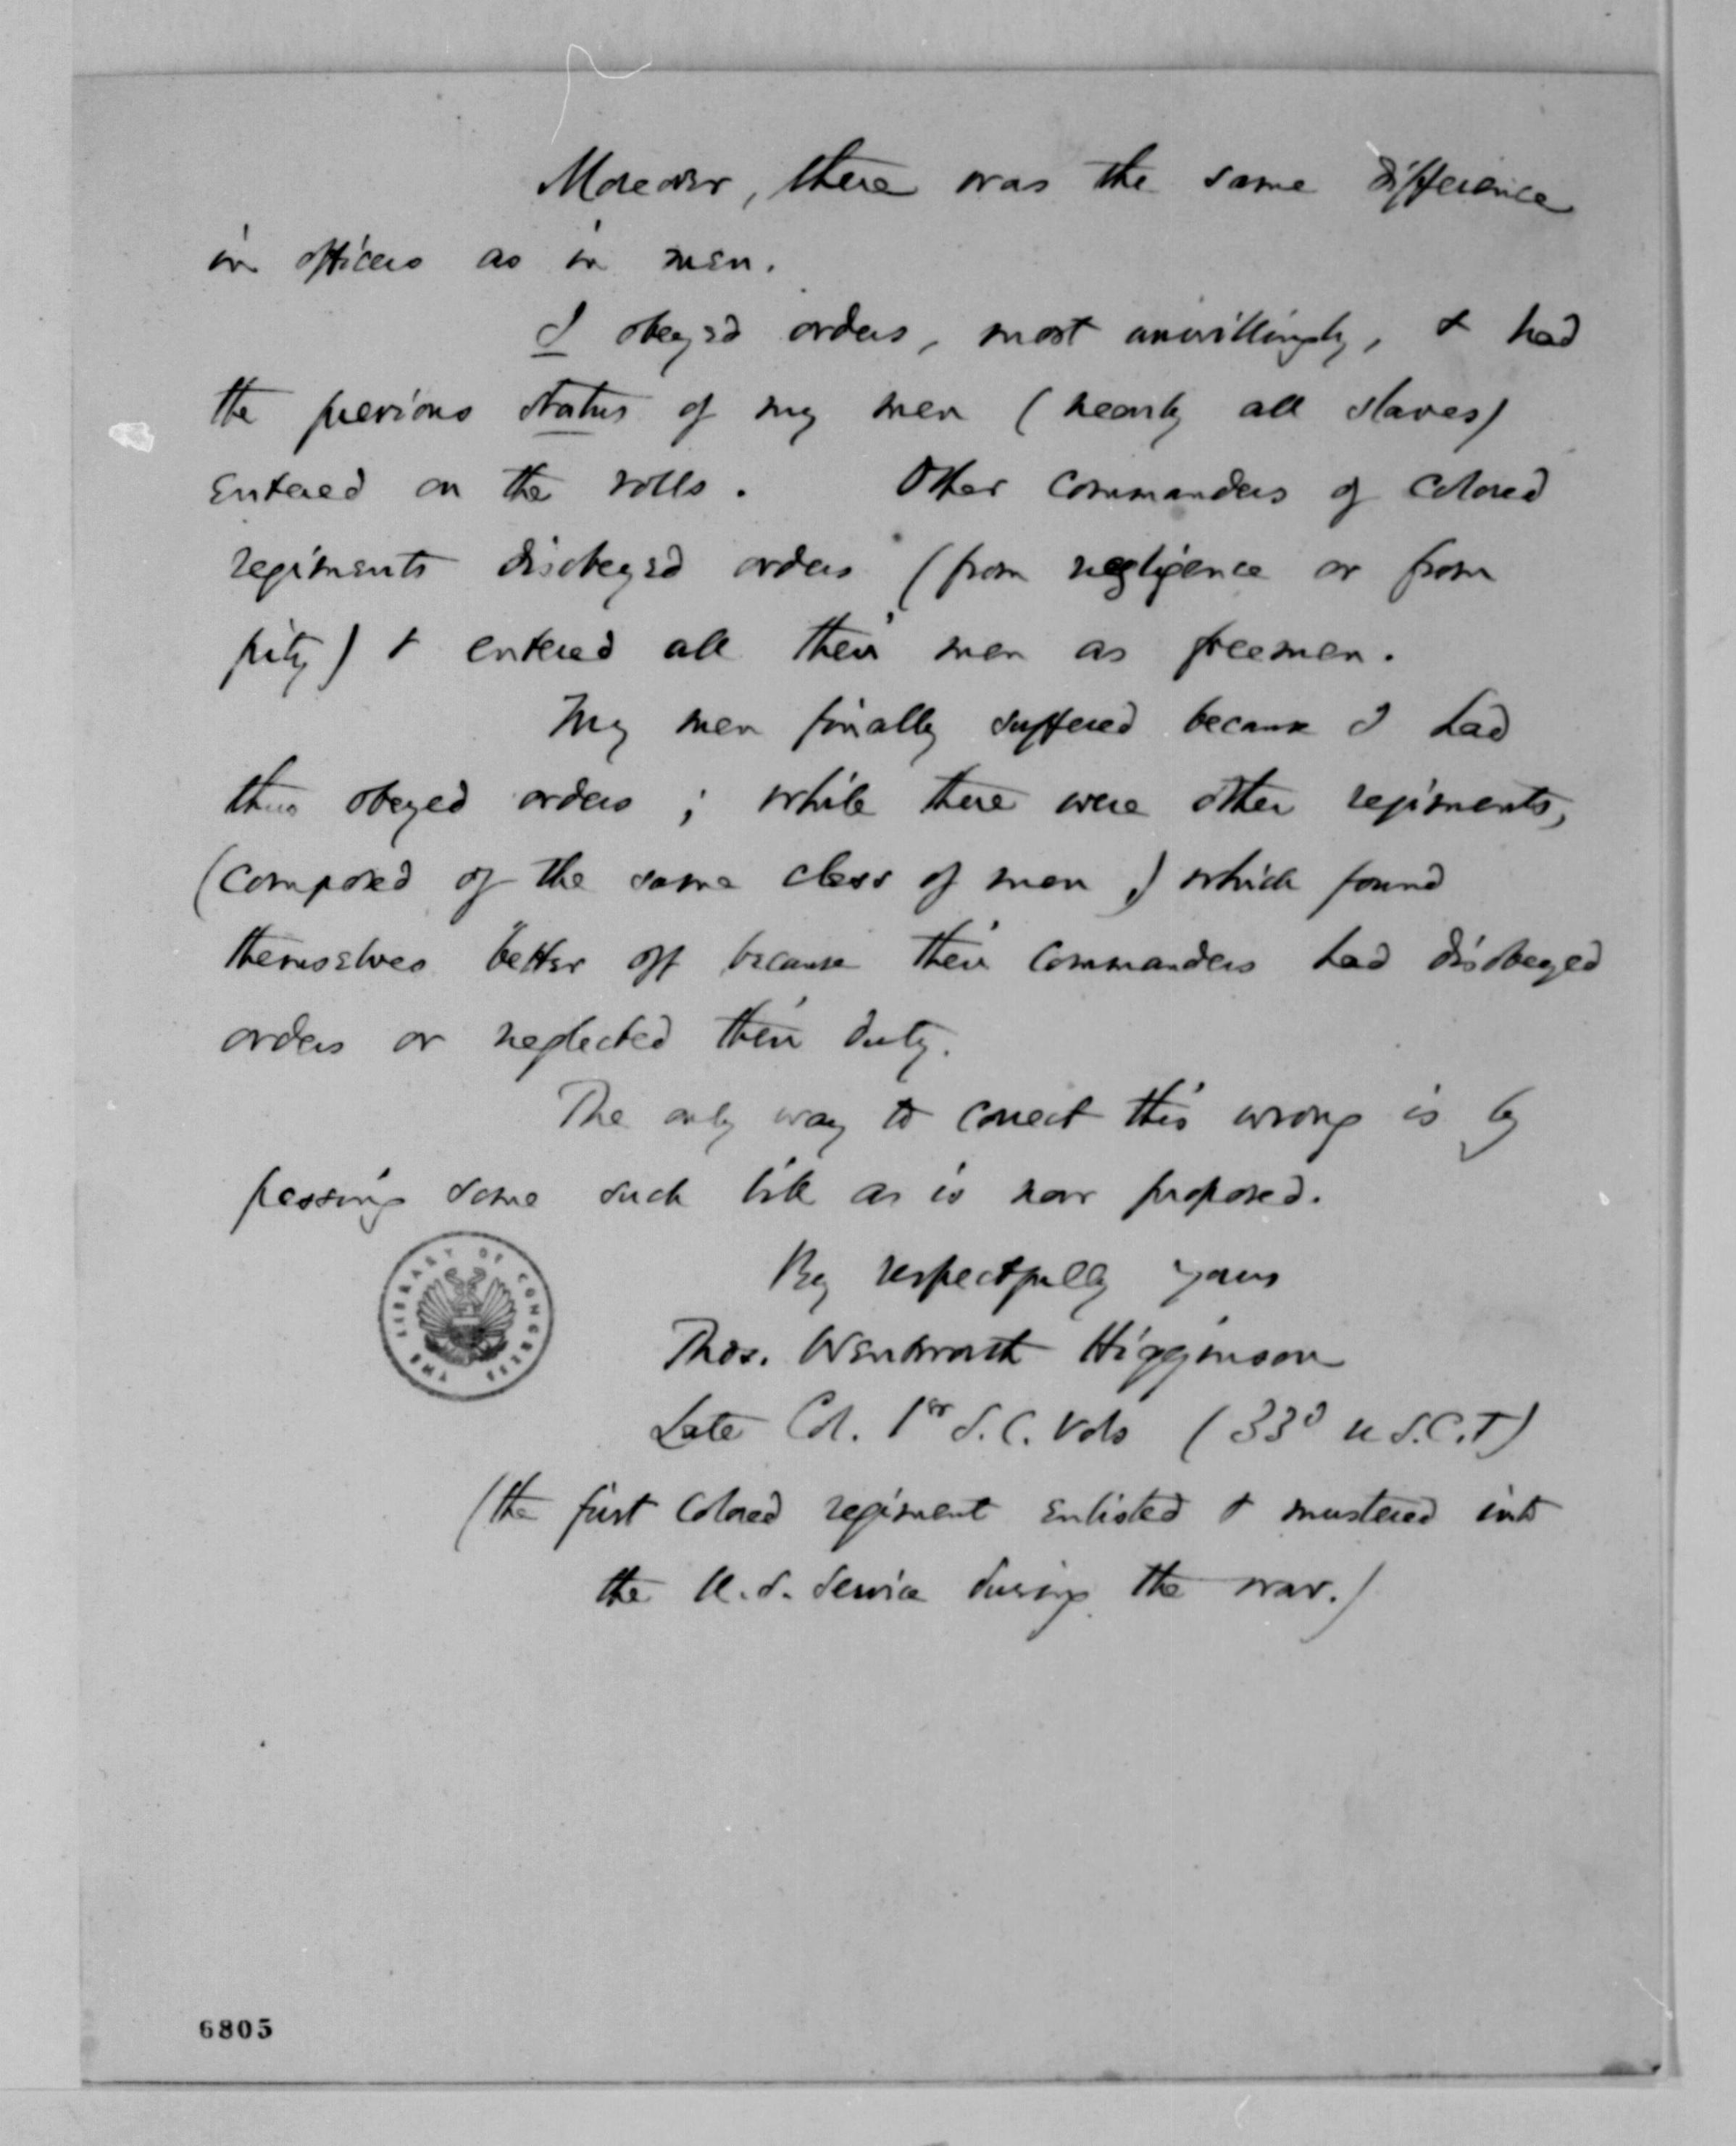 Moreover, there was the same difference
in officers as in men.
I obeyed orders, most unwillingly, & had
the previous status of my men (nearly all slaves)
entered on the rolls. Other commanders of colored
regiments disobeyed orders (from negligence or from
pity) & entered all their men as freemen.
My men finally suffered because I had
thus obeyed orders; while there were other regiments,
(composed of the same class of men,) which found
themselves better off because their commanders had disobeyed
orders or neglected their duty.
The only way to correct this wrong is by
passing some such bill as is now proposed.
THE LIBRARY OF CONGRESS
respectfully yours
Thos. Wentworth Higginson
Late Col. 1st S.C. Vols (33d U.S.C.T)
(the first colored regiment enlisted & mustered into
the U.S. service during the war.)
6805